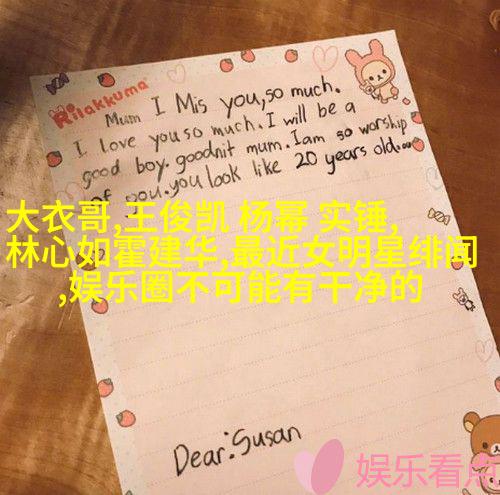 Rilakkuma
Mum I Mis you,so much.
I love you so much. I will be a
good boy. goodnit mum. Iam so worship
of you. you look like 20 years old.
大衣哥,王俊凯 杨幂 实锤,
林心如霍建华,最近女明星绯闻
,娱乐圈不可能有干净的
Dear:Susan
娱乐看点